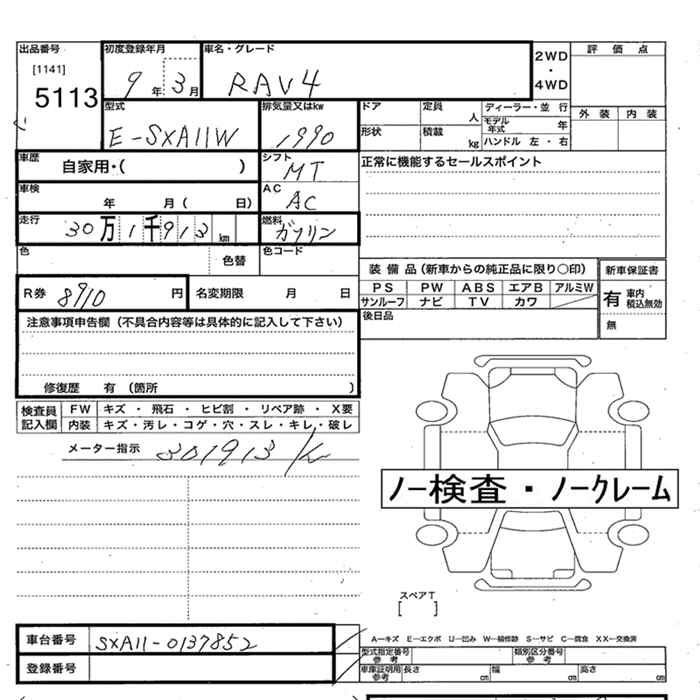 出品番号 初度登録年月 車名・グレード 2WD ・ 4WD 評価点
[1141]
5113 9年 3月 RAV4
外装 内装
型式 排気量又はkw ドア 定員 人 ディーラー・並行
E-SXA11W 1990 形状 積載 kg モデル年式 年
ハンドル 左・右
車歴 自家用・( ) シフト MT 正常に機能するセールスポイント
車検 年 月( 日) AC AC
走行 30万1千913km 燃料 ガソリン
色 色替 色コード
装備品(新車からの純正品に限り〇印) 新車保証書
R券 8910円 名変期限 月 日 PS PW ABS エアB アルミW 有 車内 積込無効
サンルーフ ナビ TV カワ
後日品 無
注意事項申告欄(不具合内容等は具体的に記入して下さい)
修復歴 有(箇所 )
検査員記入欄 FW キズ・飛石・ヒビ割・リペア跡・X要
内装 キズ・汚レ・コゲ・穴・スレ・キレ・破レ
メーター指示 301913 K
ノー検査・ノークレーム
スペアT
[ ]
車台番号 SXA11-0137852
A―キズ E―エクボ U―凹み W―補修跡 S―サビ C―腐食 XX―交換済
型式指定番号 参考 類別区分番号 参考
登録番号 車庫証明用 参考 長さ cm 幅 cm 高さ cm